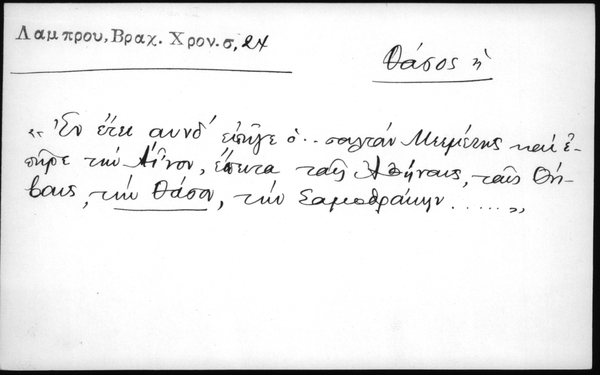 Λαμπρου, Βραχ. Χρον. σ, 24
Θάσος ἡ
« Ἐν ἔτει αυνδʹ ὁ .. σουλτάν Μεεμέτης καὶ ἐ-
πῆρε τὴν Αἶνον, ἔπειτα ταῖς Ἀθήναις, ταῖς Θή-
βαις, τὴν Θάσον, τὴν Σαμοθρᾴκην ...... »